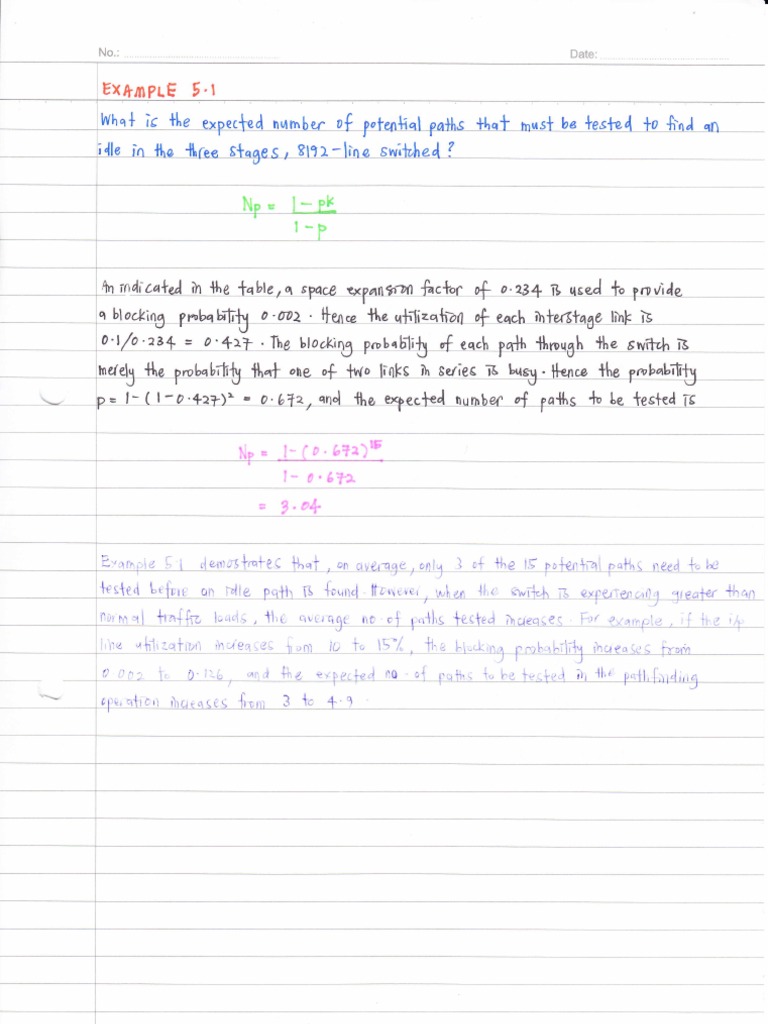 No.:
Date:
EXAMPLE 5.1
What is the expected number of potential paths that must be tested to find an
idle in the three stages, 8192-line switched?
Np = 1-pk
1-p
An indicated in the table, a space expansion factor of 0.234 is used to provide
a blocking probability 0.002. Hence the utilization of each interstage link is
0.1/0.234 = 0.427. The blocking probability of each path through the switch is
merely the probability that one of two links in series is busy. Hence the probability
p = 1-(1-0.427)² = 0.672, and the expected number of paths to be tested is
Np = 1-(0.672)¹⁵
1-0.672
= 3.04
Example 5.1 demostrates that, on average, only 3 of the 15 potential paths need to be
tested before an idle path is found. However, when the switch is experiencing greater than
normal traffic loads, the average no. of paths tested increases. For example, if the i/p
line utilization increases from 10 to 15%, the blocking probability increases from
0.002 to 0.126, and the expected no. of paths to be tested in the pathfinding
operation increases from 3 to 4.9.